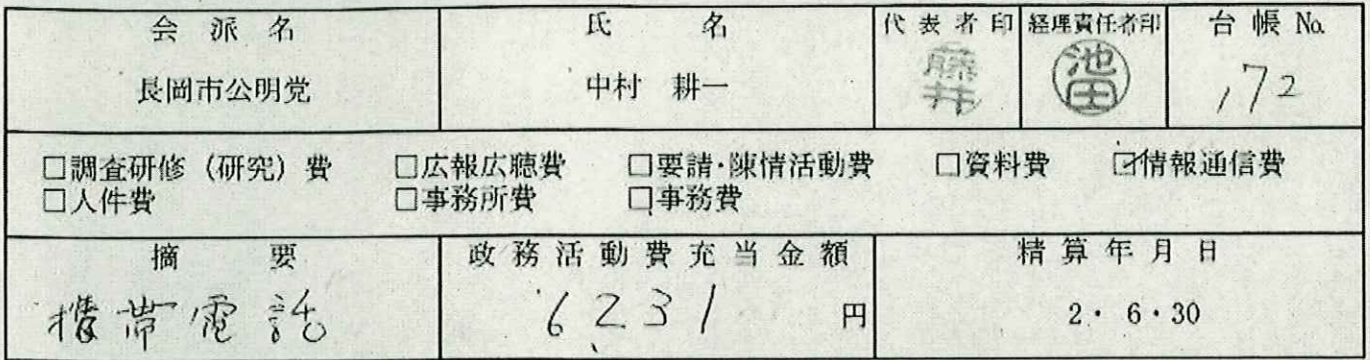 会派名 氏名 代表者印 経理責任者印 台帳 No.
長岡市公明党 中村 耕一 藤井 池田 172
□調査研修（研究）費 □広報広聴費 □要請・陳情活動費 □資料費 ☑情報通信費
□人件費 □事務所費 □事務費
摘要 政務活動費充当金額 精算年月日
携帯電話 6231 円 2・6・30